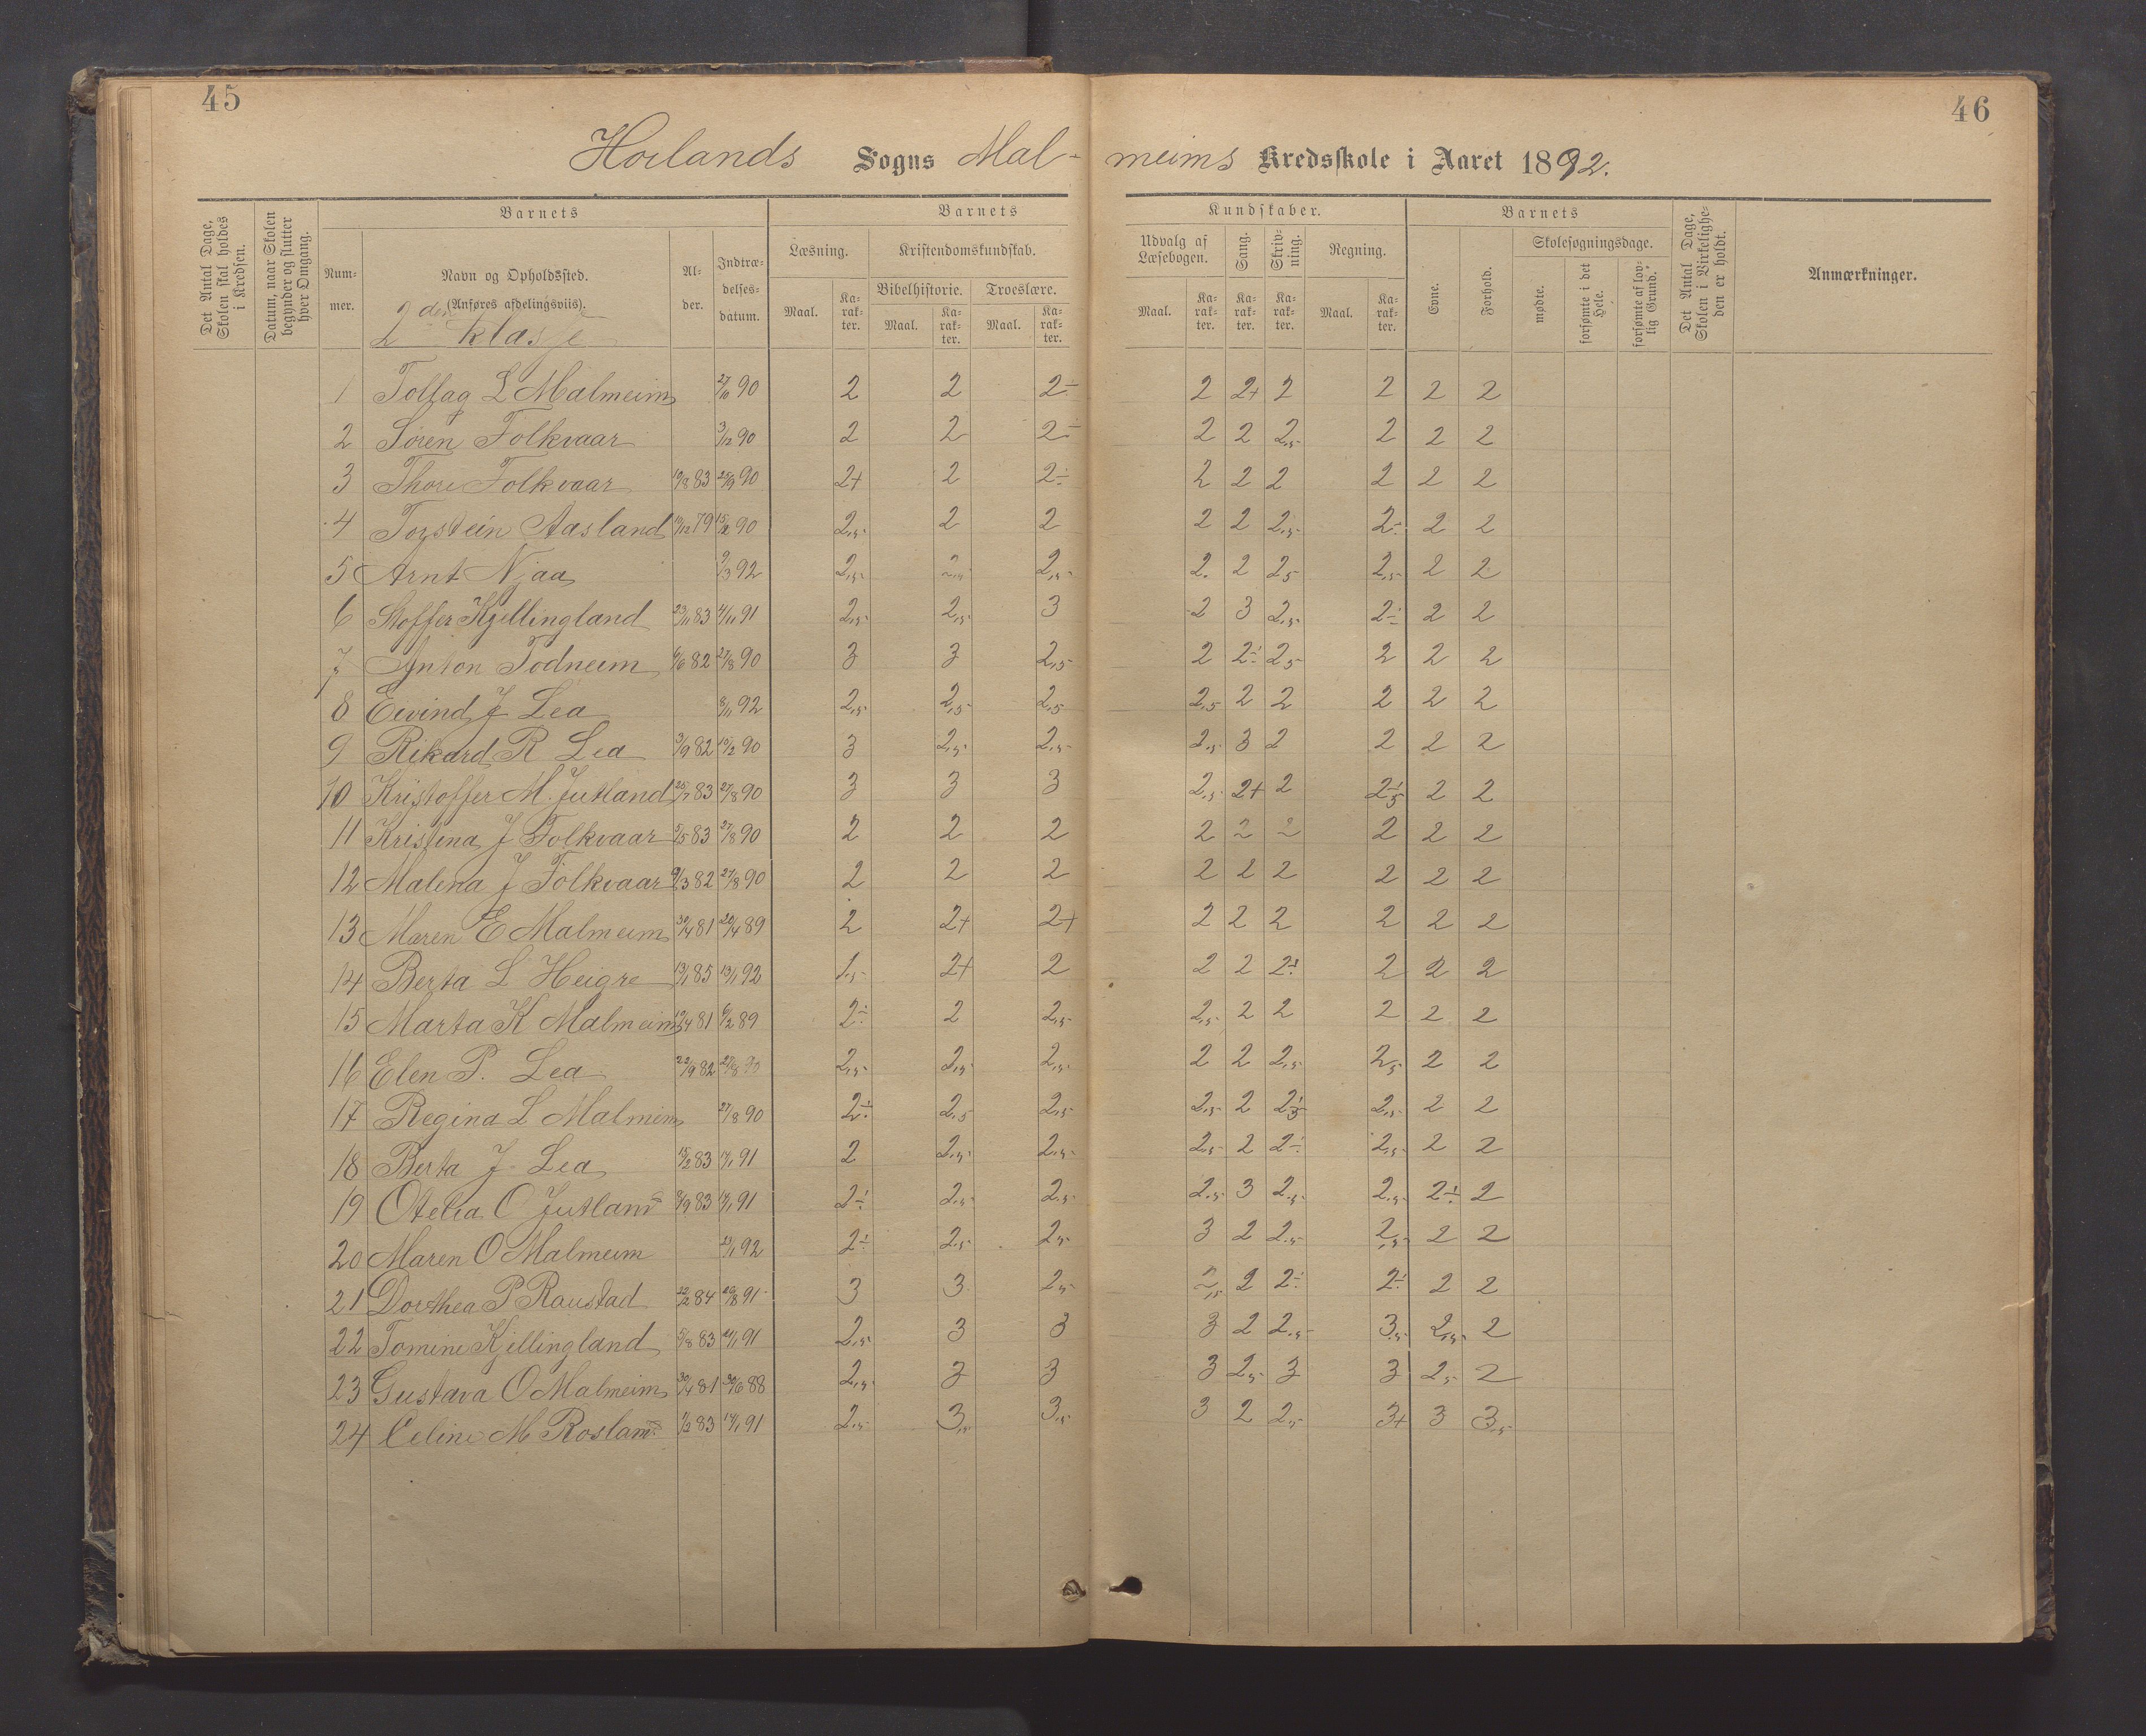 45
46
Hoilands Sogns Mal-meims Kredsskole i Aaret 1892.
Det Antal Dage, Skolen skal holdes i Kredsen.
Datum, naar Skolen begynder og slutter hver Omgang.
Barnets
Num-mer.
Navn og Opholdssted.
(Anføres afdelingsviis).
2den Klasse
Al-der.
Indtræ-delses-datum.
Barnets
Læsning.
Maal.
Ka-rak-ter.
Kristendomskundskab.
Bibelhistorie.
Maal.
Ka-rak-ter.
Troeslære.
Maal.
Ka-rak-ter.
Kundskaber.
Udvalg af Læsebogen.
Maal.
Ka-rak-ter.
Sang.
Ka-rak-ter.
Skriv-ning.
Ka-rak-ter.
Regning.
Maal.
Ka-rak-ter.
Barnets
Evne.
Forhold.
Skolesøgningsdage.
mødte.
forsømte i det Hele.
forsømte af lov-lig Grund.
Det Antal Dage, Skolen i Virkelighe-den er holdt.
Anmærkninger.
1 Tollag L Malmeim 27/10 90 2 2 2÷ 2 2+ 2 2 2 2
2 Sören Folkvaar 3/12 90 2 2 2÷ 2 2 2,5 2 2 2
3 Thore Folkvaar 19/8 83 25/9 90 2+ 2 2÷ 2 2 2 2 2 2
4 Torstein Aasland 19/12 79 15/2 90 2,5 2 2 2 2 2,5 2÷ 2 2
5 Arnt Njaa 9/3 92 2,5 2,5 2,5 2. 2 2,5 2,5 2 2
6 Stoffer Kjellingland 23/11 83 4/11 91 2,5 2,5 3 2 3 2,5 2÷ 2 2
7 Anton Todneim 6/6 82 27/8 90 3 3 2,5 2 2÷ 2,5 2 2 2
8 Eivind J Lea 8/11 92 2,5 2,5 2,5 2,5 2 2 2 2 2
9 Rikard R Lea 3/9 82 19/2 90 3 2,5 2,5 2,5 3 2 2 2 2
10 Kristoffer M. Jutland 25/7 83 27/8 90 3 3 3 2,5 2+ 2 2÷5 2 2
11 Kristina J Folkvaar 5/5 83 27/8 90 2 2 2 2 2 2 2 2 2
12 Malena J Folkvaar 9/3 82 27/8 90 2 2 2 2 2 2 2 2 2
13 Maren E Malmeim 30/4 81 20/4 89 2 2+ 2+ 2 2 2 2 2 2
14 Berta L Heigre 13/1 85 13/1 92 1,5 2+ 2 2 2 2÷ 2 2 2
15 Marta K Malmeim 19/4 81 6/2 89 2÷ 2 2,5 2,5 2 2 2 2 2
16 Elen P. Lea 22/9 82 27/8 90 2,5 2,5 2,5 2 2 2,5 2,5 2 2
17 Regina L Malmeim 27/8 90 2÷ 2,5 2,5 2,5 2 2÷5 2,5 2 2
18 Berta J. Lea 15/2 83 7/1 91 2 2,5 2,5 2,5 2 2÷ 2,5 2 2
19 Otelia O Jutland 8/9 83 17/1 91 2÷ 2,5 2,5 2,5 3 2,5 2,5 2÷ 2
20 Maren O Malmeim 21/1 92 2÷ 2,5 2,5 3 2 2,5 2,5 2 2
21 Dorthea P Raustad 22/2 84 20/8 91 3 3 2,5 2,5 2 2÷ 2÷ 2 2
22 Tomine Kjellingland 5/8 83 21/1 91 2,5 3 3 3 2 2,5 3,5 2,5 2
23 Gustava O Malmeim 30/4 81 30/6 88 2,5 3 3 3 2,5 3 3 2,5 2
24 Celine M Rosland 7/2 83 14/1 91 2,5 3,5 3,5 3 2 2,5 3+ 3 3,5